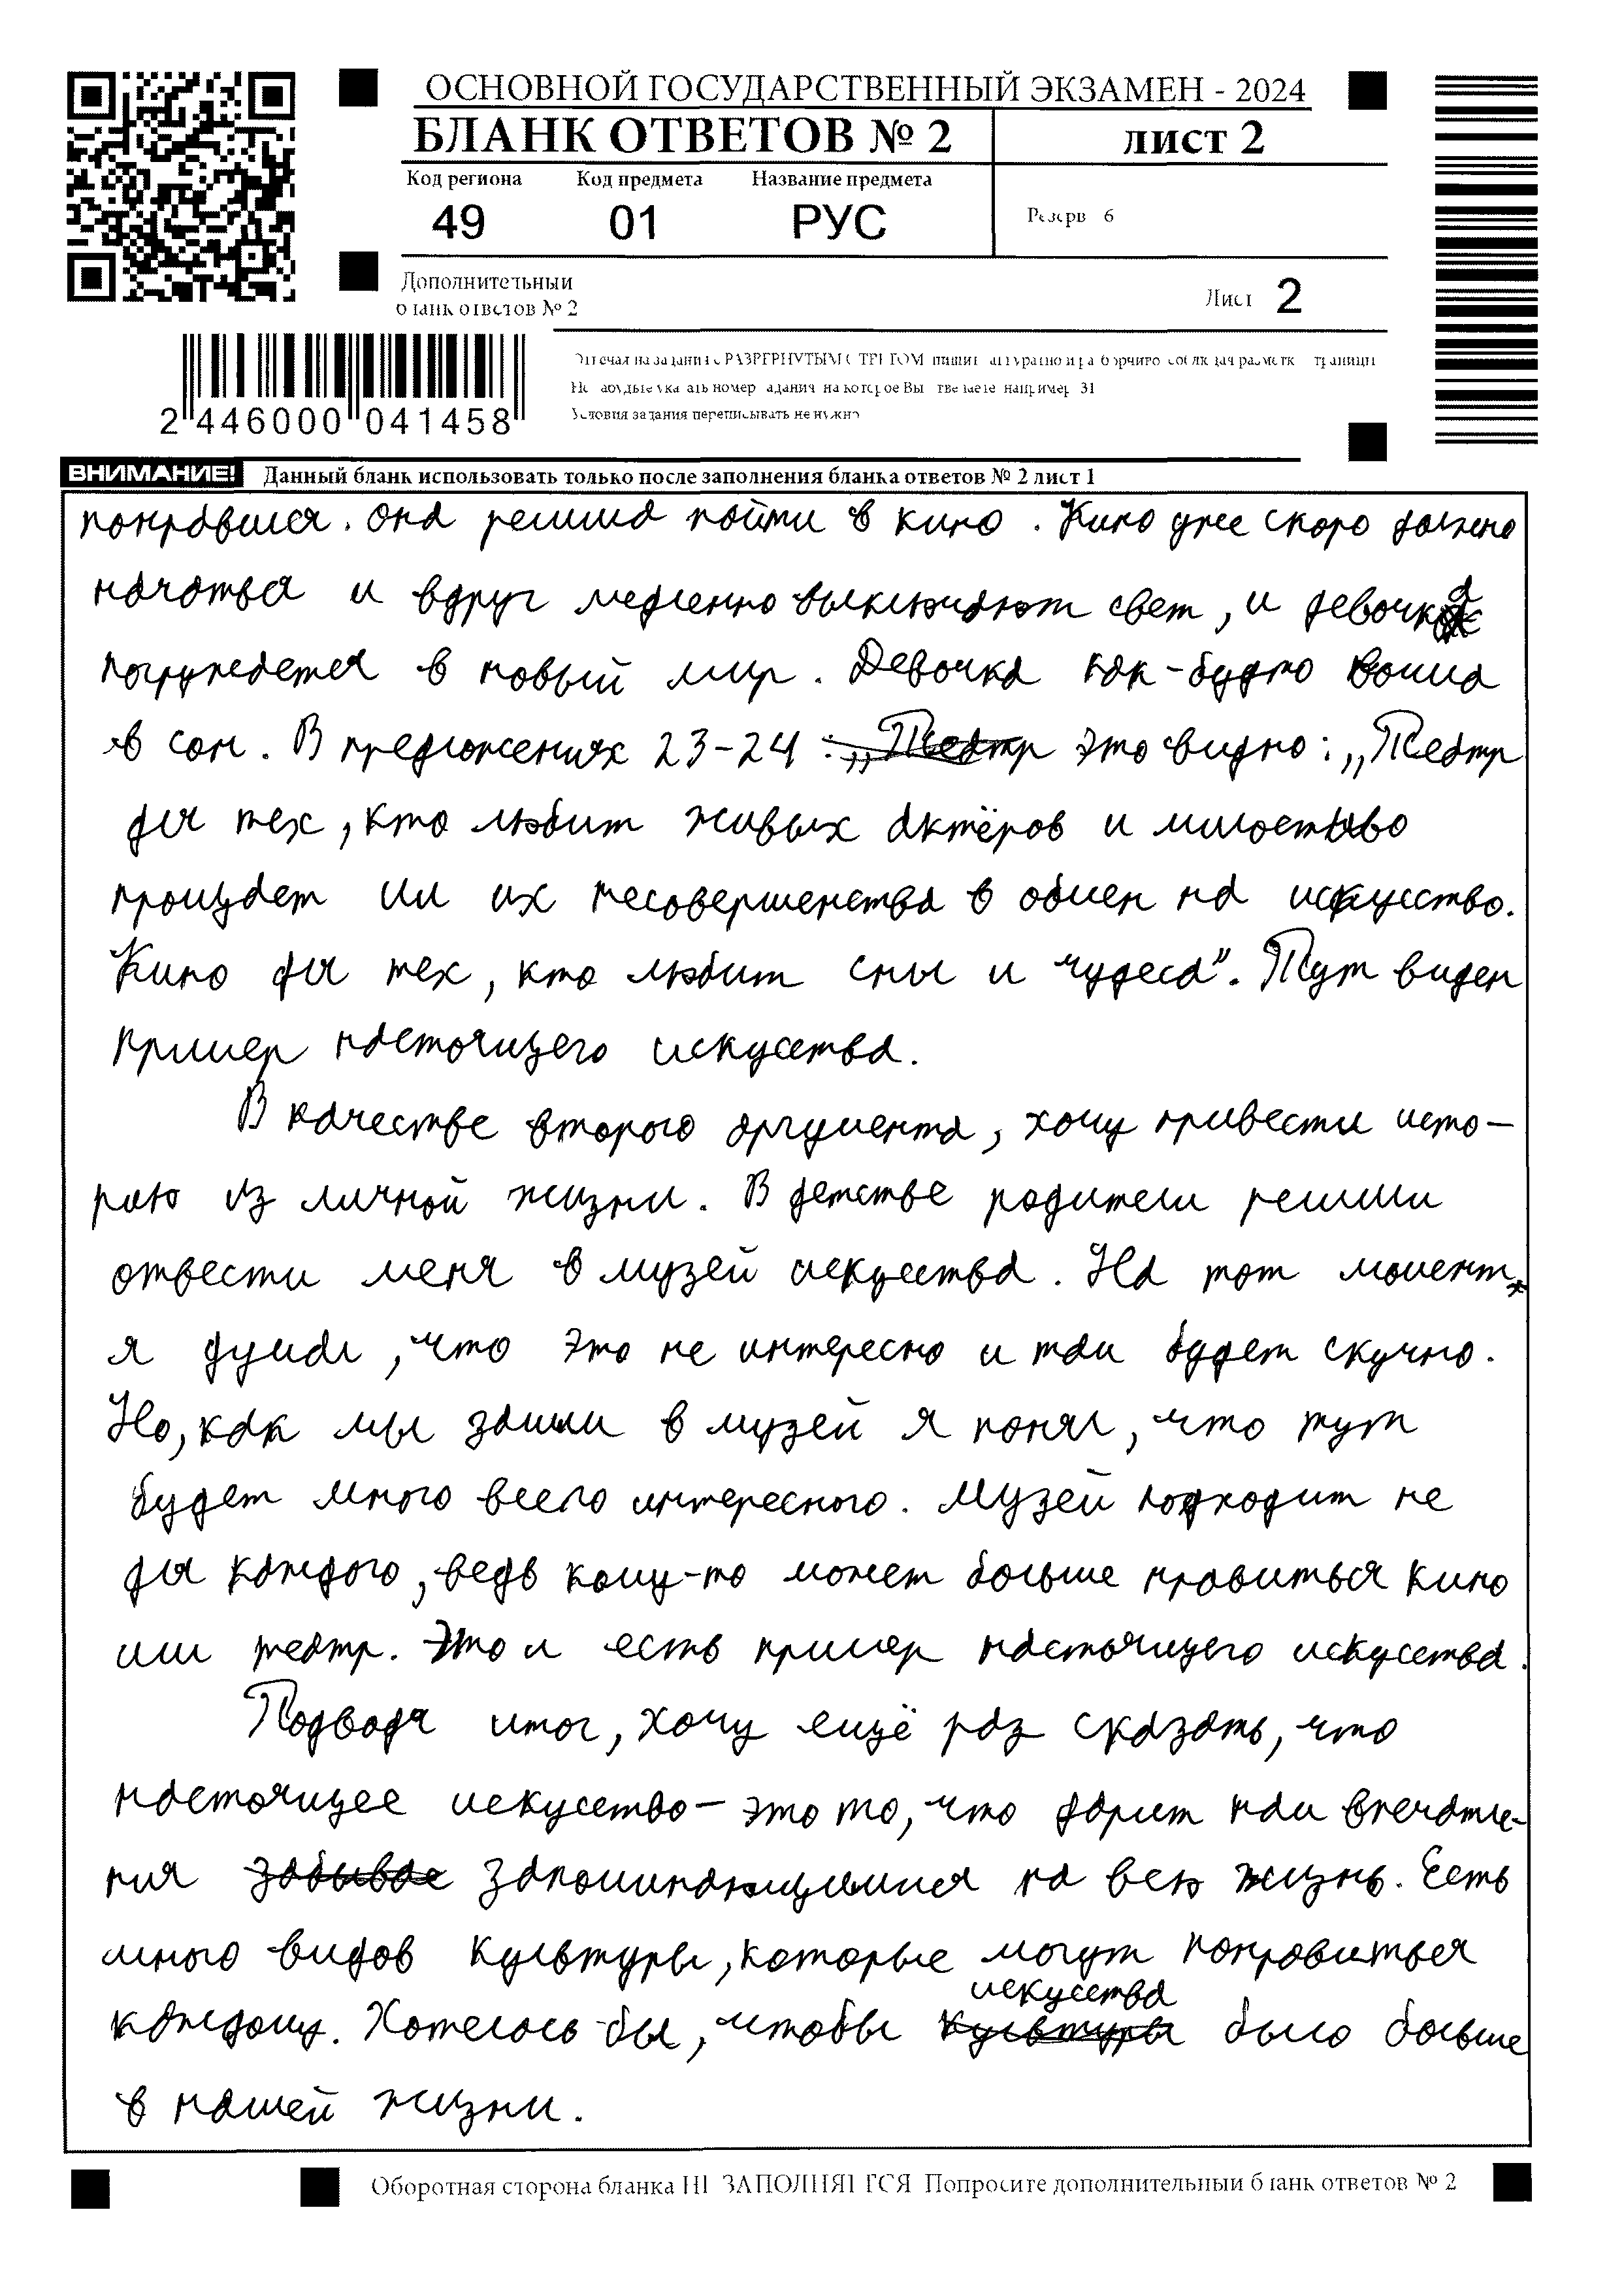 ОСНОВНОЙ ГОСУДАРСТВЕННЫЙ ЭКЗАМЕН - 2024
БЛАНК ОТВЕТОВ № 2
лист 2
Код региона Код предмета Название предмета
49 01 РУС
Резерв 6
Дополнительный
бланк ответов № 2
Лист 2
Отвечая на задания с РАЗВЕРНУТЫМ ОТВЕТОМ пишите аккуратно и разборчиво соблюдая разметку страницы
Не забудьте указать номер задания на которое Вы отвечаете например 31
Условия задания переписывать не нужно
2 446000 041458
ВНИМАНИЕ! Данный бланк использовать только после заполнения бланка ответов № 2 лист 1
понравился. Она решила пойти в кино. Кино уже скоро должно
начаться и вдруг медленно выключают свет, и девочка
погружается в новый мир. Девочка как-будто вошла
в сон. В предложениях 23-24 : „Театр это видно: „Театр
для тех, кто любит живых актёров и милостиво
прощает им их несовершенства в обмен на искусство.
Кино для тех, кто любит сны и чудеса". Тут виден
пример настоящего искусства.
В качестве второго аргумента, хочу привести исто-
рию из личной жизни. В детстве родители решили
отвести меня в музей искусства. На тот момент
я думал, что это не интересно и там будет скучно.
Но, как мы зашли в музей я понял, что тут
будет много всего интересного. Музей подходит не
для каждого, ведь кому-то может больше нравиться кино
или театр. Это и есть пример настоящего искусства.
Подводя итог, хочу ещё раз сказать, что
настоящее искусство - это то, что дарит нам впечатле-
ния забывае запоминающимися на всю жизнь. Есть
много видов культуры, которые могут понравиться
искусства
каждому. Хотелось бы, чтобы культуры было больше
в нашей жизни.
Оборотная сторона бланка НЕ ЗАПОЛНЯЕТСЯ Попросите дополнительный бланк ответов № 2